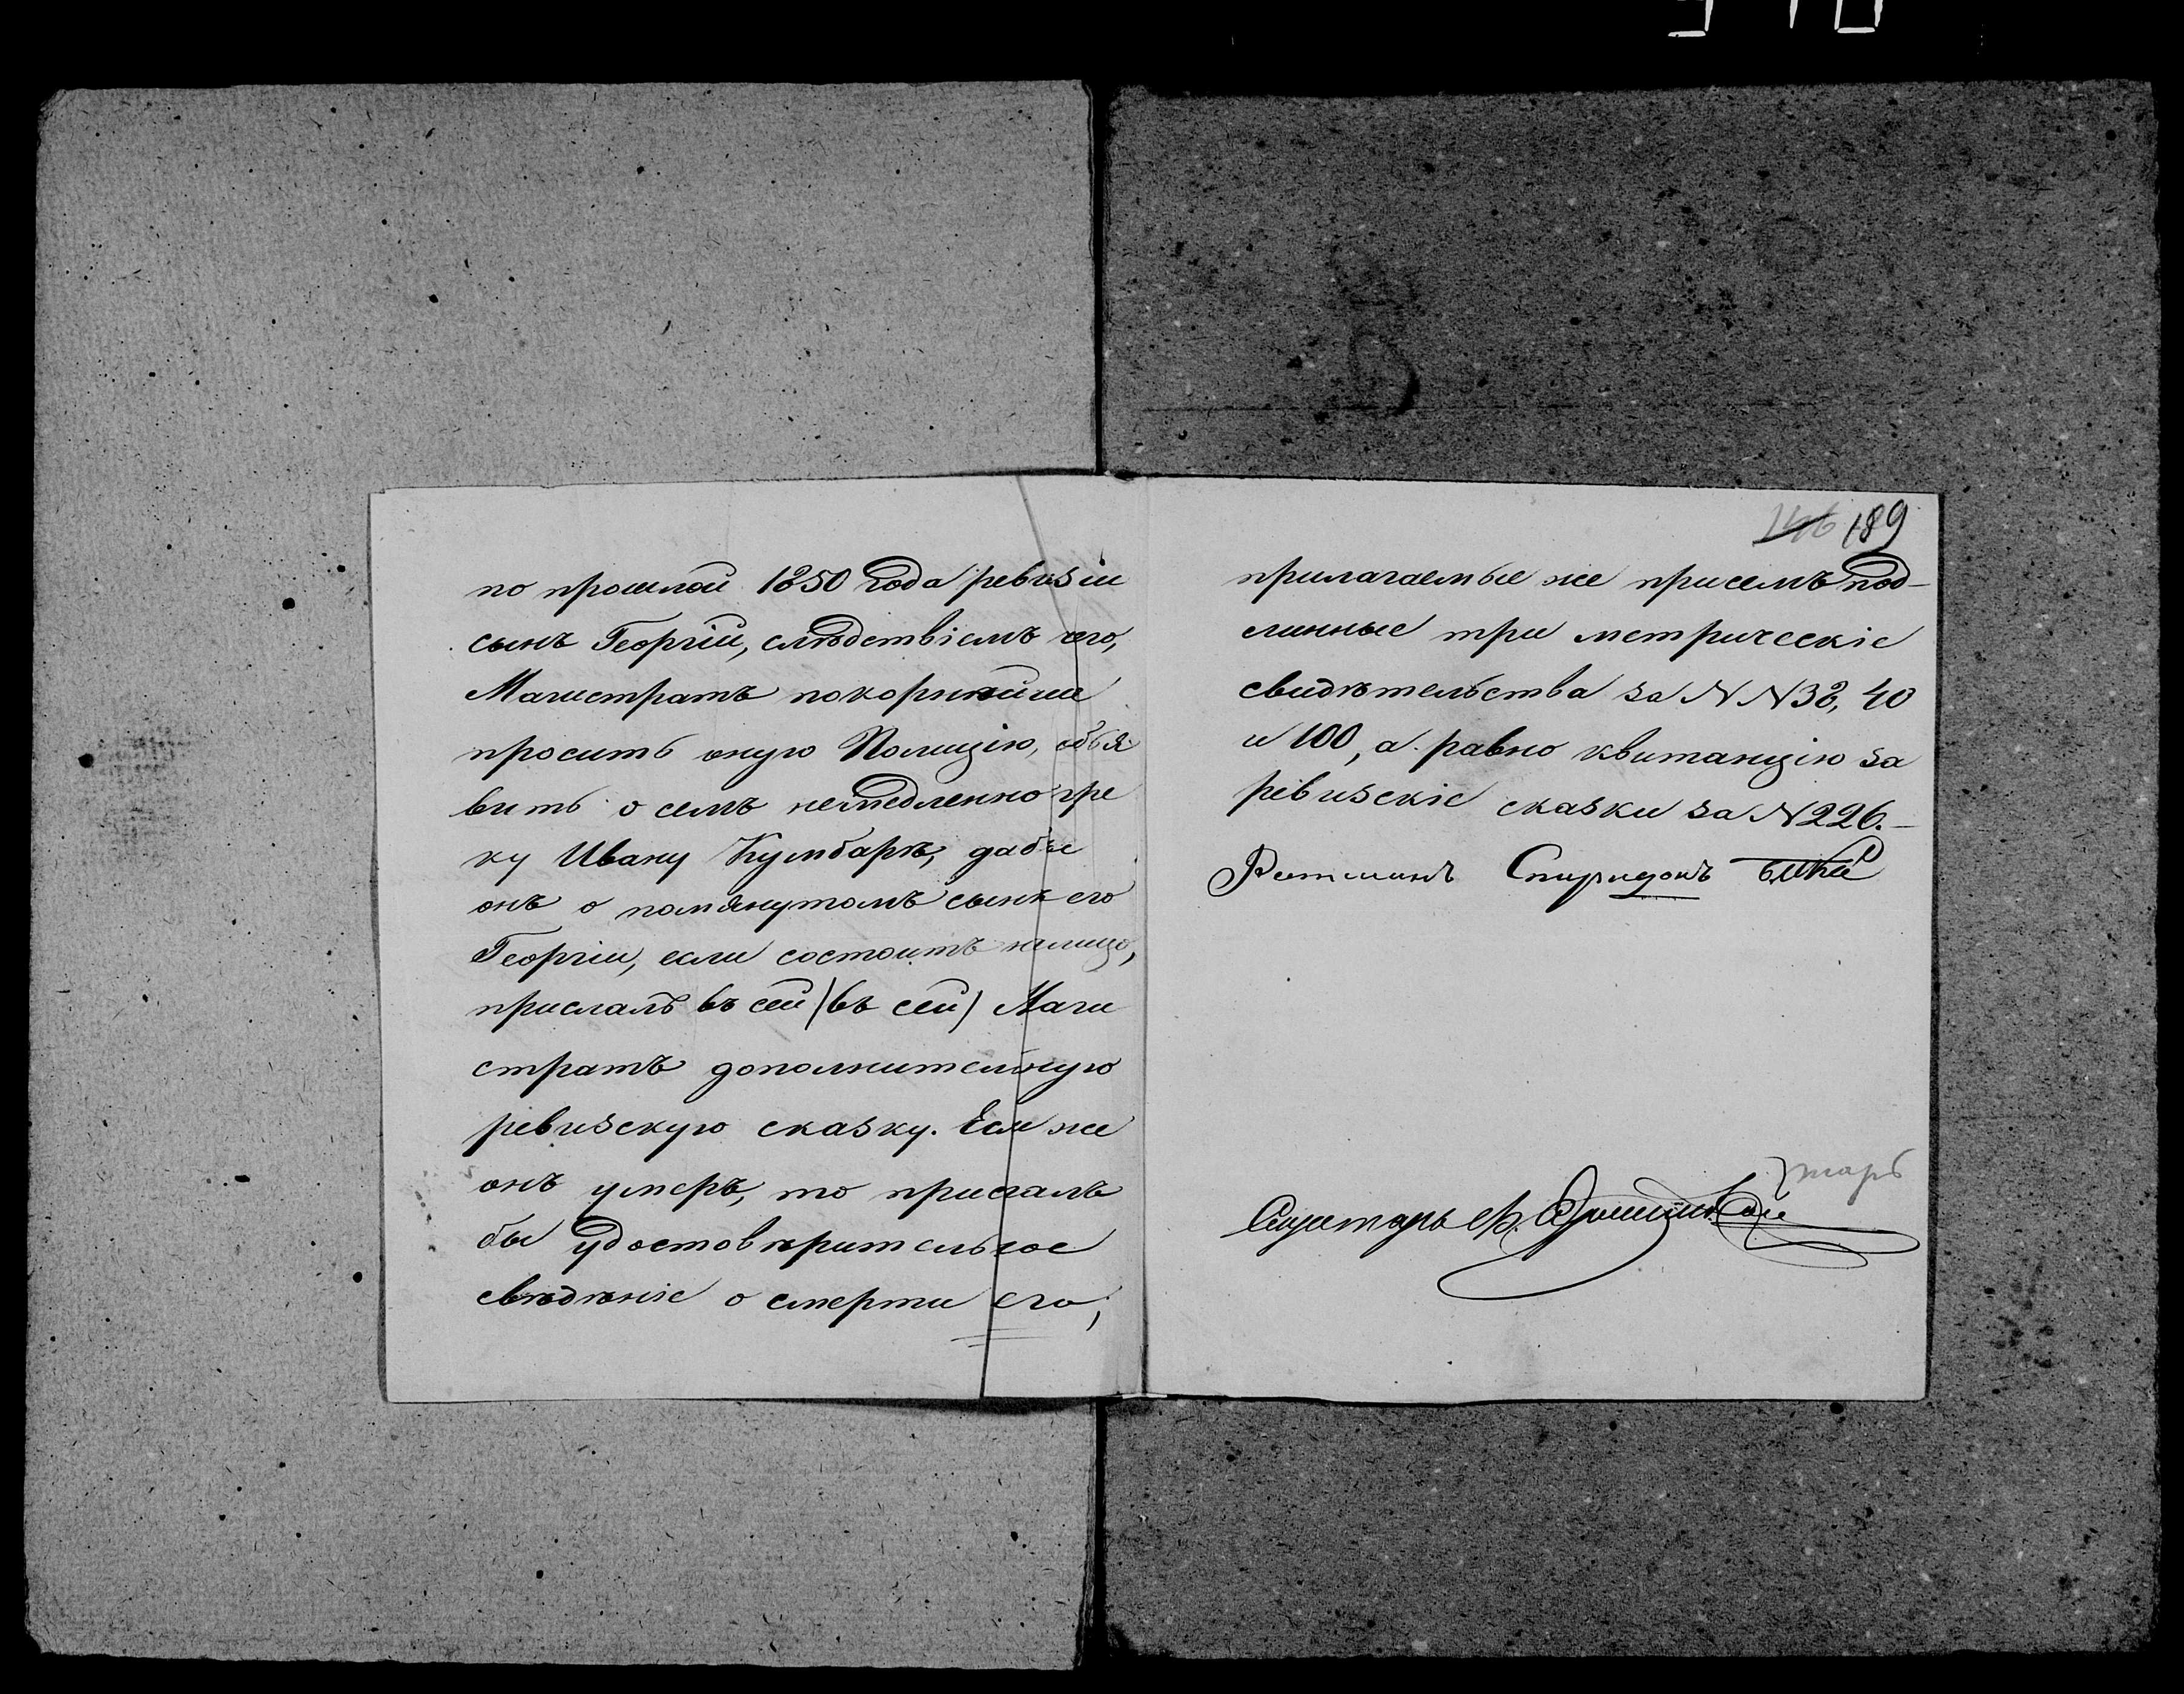 по прошлой 1850 года ревизіи
сынъ Георгій, слѣдствіемъ чего,
Магистратъ покорнѣйше
проситъ оную Полицію, объя
вить о семъ немедленно гре
ку Ивану Кумбарѣ, дабы
онъ о помянутомъ сынѣ его
Георгіи, если состоитъ налицо,
прислалъ въ сей (въ сей) Маги
стратъ дополнительную
ревизскую сказку. Если же
онъ умеръ, то прислалъ
бы удостовѣрительное
свѣдѣніе о смерти его,
146 189
прилагаемые же присемъ под-
линные три метрическіе
свидѣтельства за N N 38, 40
и 100, а равно квитанцію за
ревизскіе сказки за N 226.-
Ратманъ Спиридонъ
Секретарь